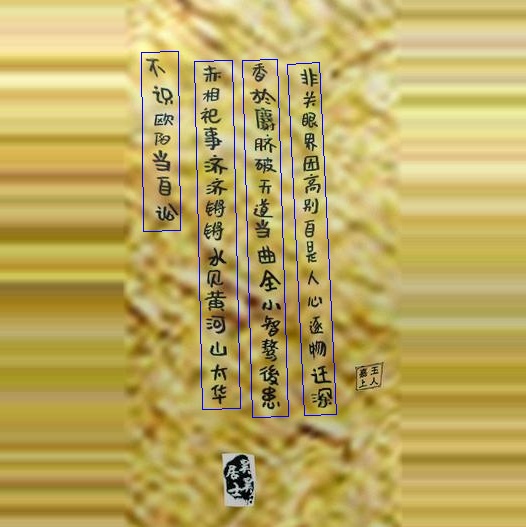 非关眼界因高别自是人心逐物迁深
香於麝脐破五道当曲全小智骛後患
赤相祀事济济锵锵水见黄河山太华
不识欧阳当自讼